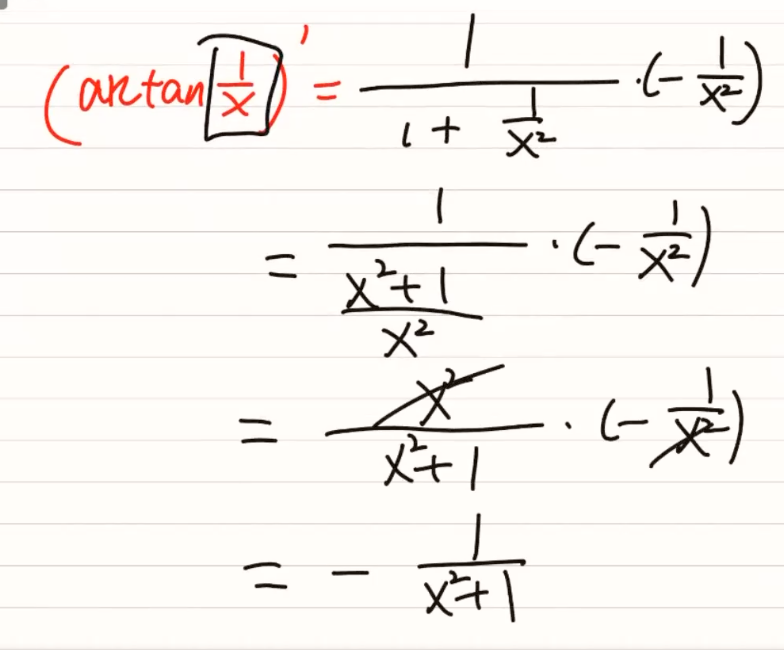 (arctan 1/x)' = 1/(1 + 1/x²) · (- 1/x²)
= 1/((x²+1)/x²) · (- 1/x²)
= x²/(x²+1) · (- 1/x²)
= - 1/(x²+1)